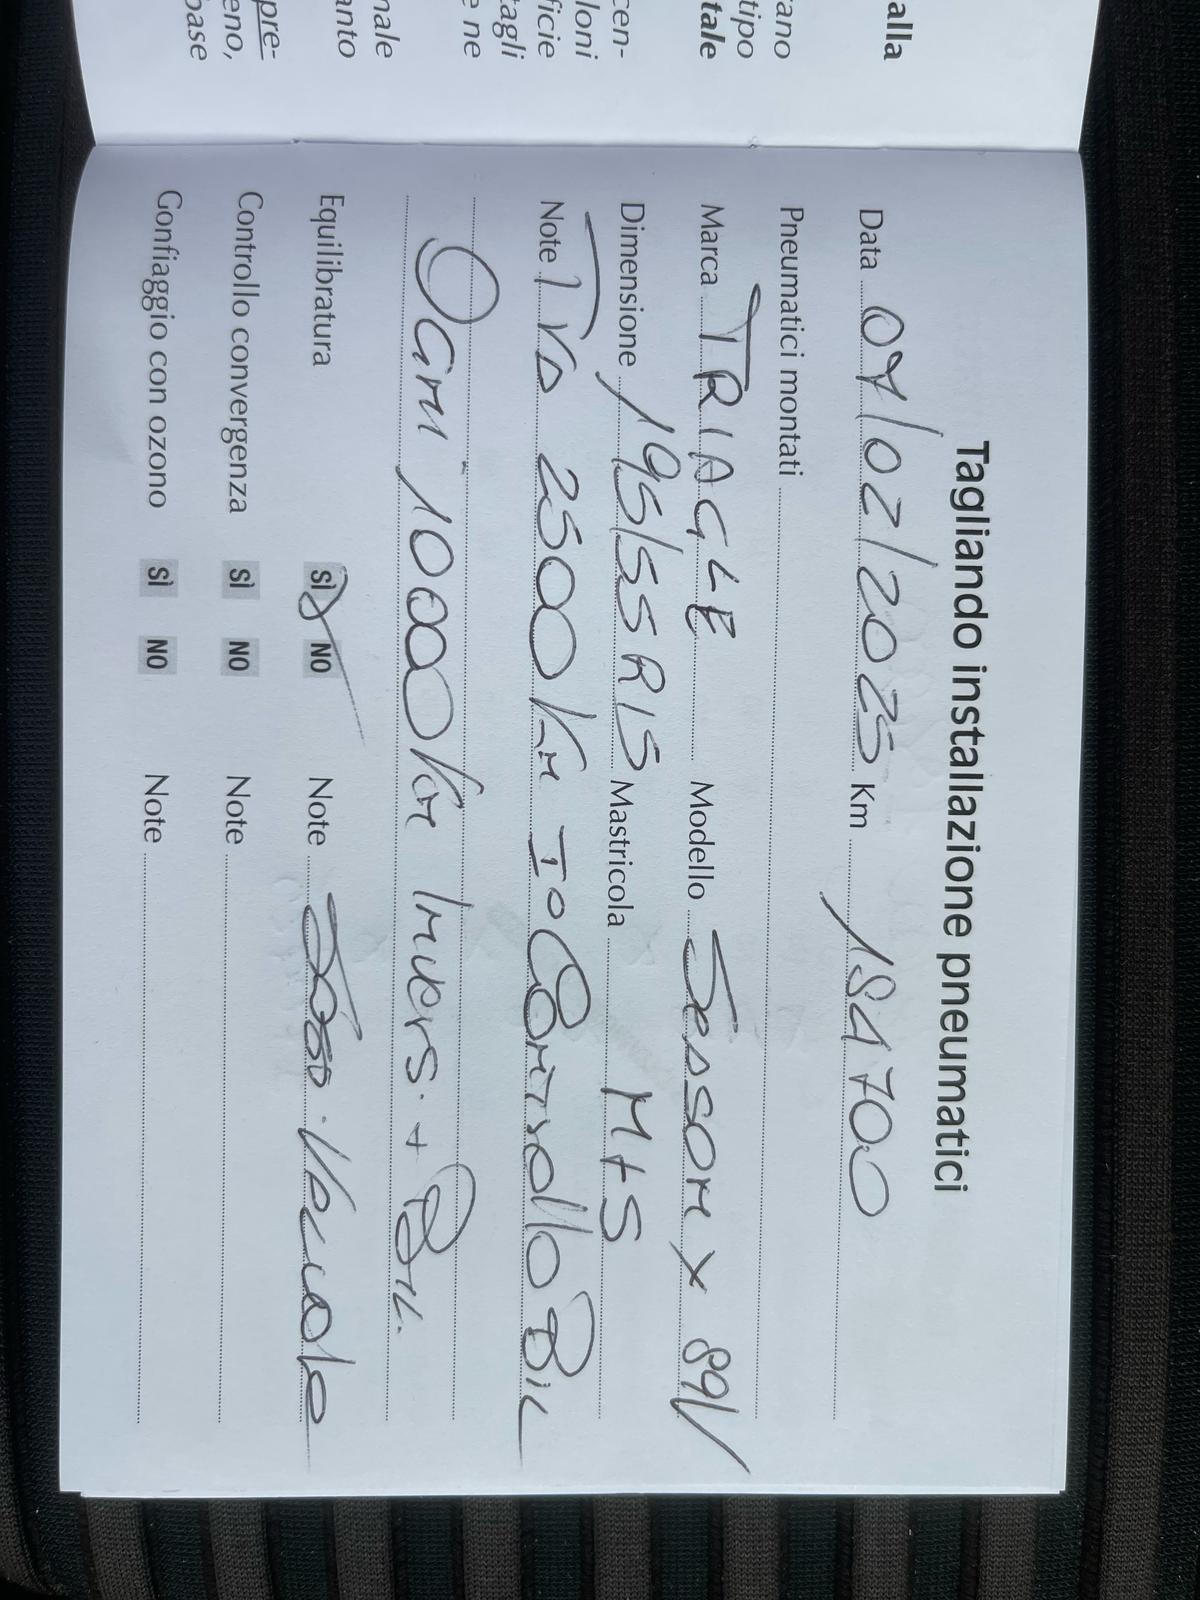 alla
rano
tipo
tale
cen-
loni
ficie
tagli
e ne
nale
anto
pre-
eno,
base
Tagliando installazione pneumatici
Data 07/02/2025 Km 184700
Pneumatici montati
Marca TRIAGLE Modello SeasonX 89V
Dimensione 195/55 R15 Mastricola M+S
Note Tra 2500 Km Io Controllo Bil
Ogni 10000 Km Invers. + Bil.
Equilibratura SÌ NO Note
Controllo convergenza SÌ NO Note
Gonfiaggio con ozono SÌ NO Note